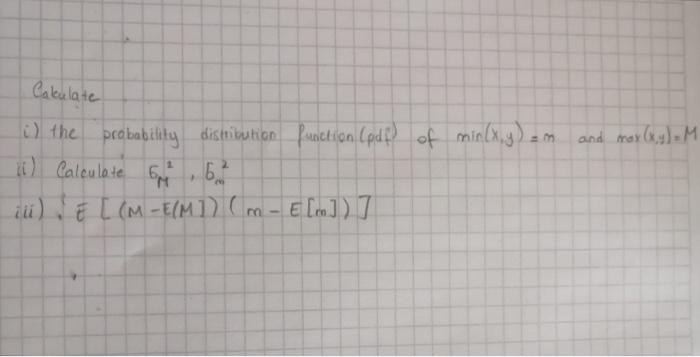 Calculate
i) the probability distribution function (pdf) of min(x,y) = m and max(x,y) = M
ii) Calculate σ_M², σ_m²
iii) E [(M - E(M])(m - E[m])]